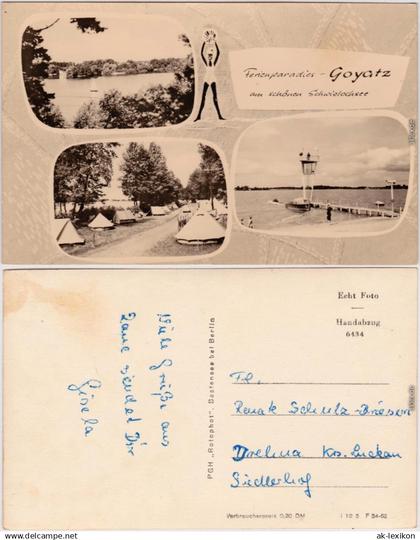 Ferienparadies - Goyatz
am schönen Schwielochsee
Echt Foto
Handabzug
6434
Viele Grüße aus
sendet Dir
Gisela
PGH „Rotophot“, Bestensee bei Berlin
Frl.
Renate Schulz-
Drehna Krs. Luckau
Siedlerhof
Verbraucherpreis 0,20 DM
F 54-62
© www.ak-lexikon.de